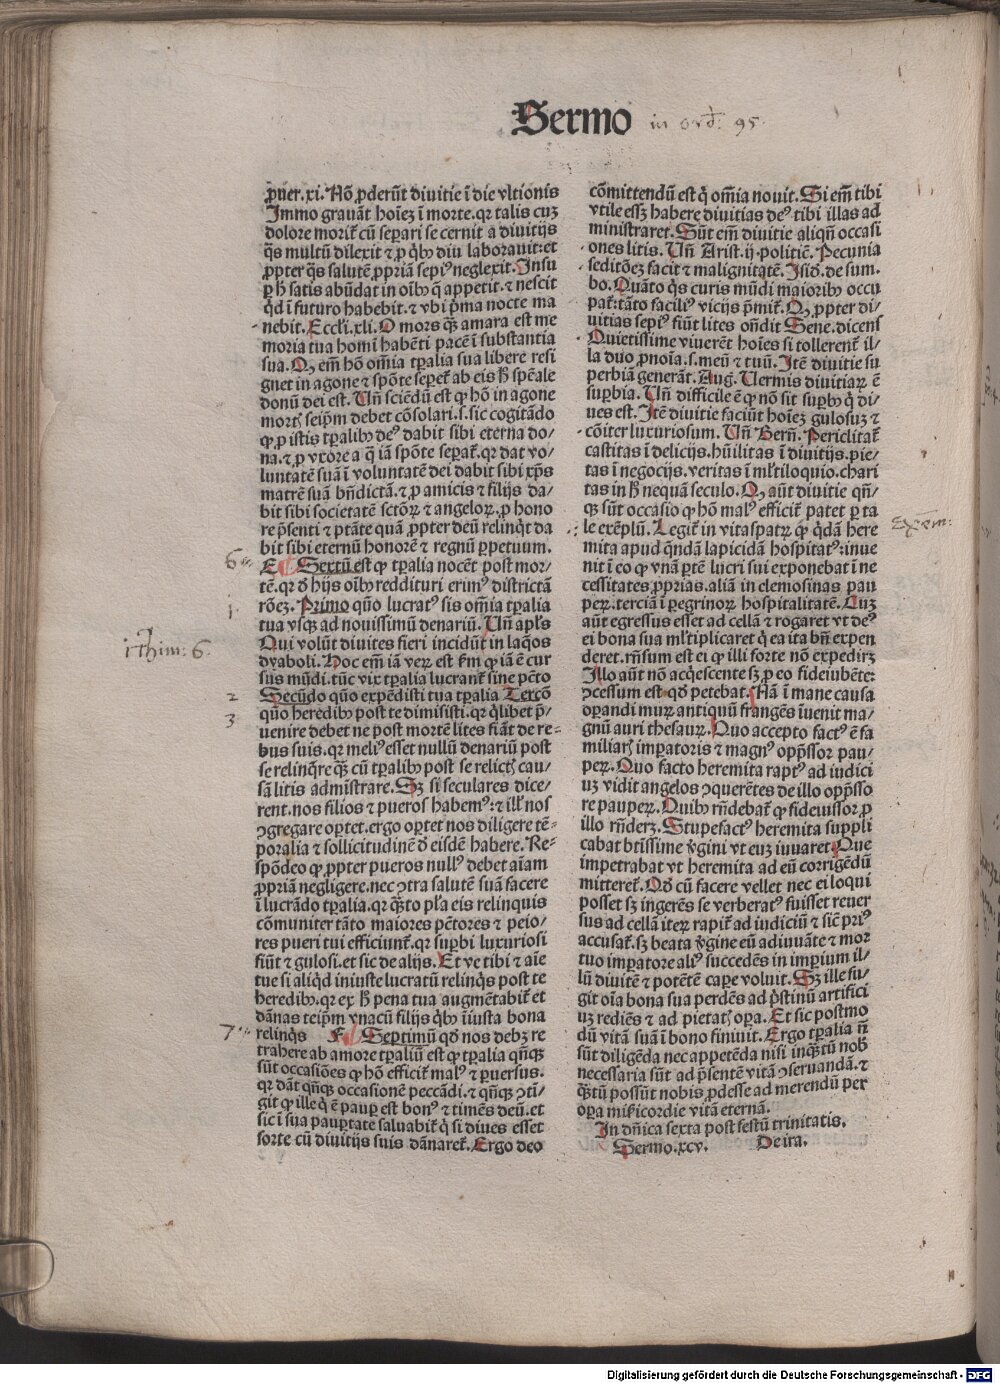 Sermo in ord: 95.
ꝓuer.xi. Nō ꝓderūt diuitie ī die vltionis
Immo grauāt hoīez ī morte.qꝛ talis cuz
dolore moriť cū separi se cernit a diuitijs
q̄s multū dilexit ⁊ ꝓ q̇bꝰ diu laborauit:et
ꝓpter q̄s salutē ꝓpriā sepiꝰ neglexit. Insu
ꝑ h̄ satis abūdat in oībꝰ q̄ appetit.⁊ nescit
qd̄ ī futuro habebit.⁊ vbi pͥma nocte ma
nebit. Eccľi.xli. O mors q̄ꝫ amara est me
moria tua homī habēti pacē ī substantia
sua. Qꝫ em̄ hō om̄ia tꝑalia sua libere resi
gnet in agone ⁊ spōte sepeť ab eis h̄ spēale
donū dei est. Un̄ sciēdū est ꝙ hō in agone
mortꝭ seip̄m debet cōsolari.s.sic cogitādo
ꝙ ꝓ istis tꝑalibꝰ deꝰ dabit sibi eterna do/
na.⁊ ꝓ vxore a q̄ iā spōte sepať.qꝛ dat vo/
luntatē suā ī voluntatē dei dabit sibi xp̄s
matrē suā bn̄dictā.⁊ ꝓ amicis ⁊ filijs da/
bit sibi societatē sctōꝝ ⁊ angeloꝝ.ꝓ hono
re p̄senti ⁊ ptāte quā ꝓpter deū relinq̇t da
bit sibi eternū honorē ⁊ regnū ꝑpetuum.
6us E Sextū est ꝙ tꝑalia nocēt post mor/
tē.qꝛ d̄ hijs oībꝰ reddituri erimꝰ districtā
1 rōez. Primo quō lucratꝰ sis om̄ia tꝑalia
tua vsqꝫ ad nouissimū denariū. Un̄ apľs
1 Thim: 6. Qui volūt diuites fieri incidūt in laq̄os
dyaboli. Hoc em̄ iā veꝝ est ľm ꝙ iā ē cur
sus mūdi.tūc vix tꝑalia lucranť sine pctō
2 Secūdo quō expēdisti tua tꝑalia Tercō
3 quō heredibꝰ post te dimisisti.qꝛ q̇libet p̄/
uenire debet ne post mortē lites fiāt de re/
bus suis.qꝛ meliꝰ esset nullū denariū post
se relinq̇re q̄ꝫ cū tꝑalibꝰ post se relictꝭ cau/
sā litis administrare. Sꝫ si seculares dice/
rent.nos filios ⁊ pueros habemꝰ:⁊ illꝭ nos
ꝯgregare oꝑtet.ergo oꝑtet nos diligere tē/
poralia ⁊ sollicitudinē d̄ eisdē habere. Re/
spōdeo ꝙ ꝓpter pueros nullꝰ debet aīam
ꝓpriā negligere.nec ꝯtra salutē suā facere
ī lucrādo tꝑalia.qꝛ q̄ꝫto pľa eis relinquis
cōmuniter tāto maiores pctōres ⁊ peio/
res pueri tui efficiunť.qꝛ suꝑbi luxuriosi
fiūt ⁊ gulosi.et sic de alijs. Et ve tibi ⁊ aīe
tue si aliq̇d iniuste lucratū relinq̇s post te
heredibꝰ.qꝛ ex h̄ pena tua augmētabiť et
dānas teip̄m vnacū filijs q̇bꝰ īiusta bona
7us relinq̇s F Septimū qd̄ nos debꝫ re
trahere ab amore tꝑaliū est ꝙ tꝑalia qn̄qꝫ
sūt occasiōes ꝙ hō efficiť malꝰ ⁊ ꝑuersus.
qꝛ dāt qn̄qꝫ occasionē peccādi.⁊ qn̄qꝫ ꝯtī/
git ꝙ ille q̇ ē pauꝑ est bonꝰ ⁊ timēs deū.et
sic ī sua pauꝑtate saluabiť q̇ si diues esset
forte cū diuitijs suis dānareť. Ergo deo
cōmittendū est q̇ om̄ia nouit. Si em̄ tibi
vtile essꝫ habere diuitias deꝰ tibi illas ad
ministraret. Sūt em̄ diuitie aliqn̄ occasi
ones litis. Un̄ Arist.ij.politicē. Pecunia
seditōez facit ⁊ malignitatē. Isid̄. de sum.
bo. Quāto q̇s curis mūdi maioribꝰ occu
pať:tāto faciliꝰ vicijs p̄miť. Qꝫ ꝓpter di/
uitias sepiꝰ fiūt lites on̄dit Sene. dicens
Quietissime viuerēt hoīes si tollerenť il/
la duo ꝓnoīa.s.meū ⁊ tuū. Itē diuitie su
perbiā generāt. Aug. Uermis diuitiaꝝ ē
suꝑbia. Un̄ difficile ē ꝙ nō sit suꝑbꝰ q̇ di/
ues est. Itē diuitie faciūt hoīez gulosuz ⁊
cōiter luxuriosum. Un̄ Bern̄. Periclitať
castitas ī delicijs.hūilitas ī diuitijs.pie/
tas ī negocijs.veritas ī mľtiloquio.chari
tas in h̄ nequā seculo. Qꝫ aūt diuitie qn̄/
qꝫ sūt occasio ꝙ hō malꝰ efficiť patet ꝑ ta
le exēplū. Legiť in vitaspatꝝ ꝙ q̇dā here Exem:
mita apud quēdā lapicidā hospitatꝰ:inue
nit ī eo ꝙ vnā ꝑtē lucri sui exponebat ī ne
cessitates ꝓprias.aliā in elemosinas pau
peꝝ.terciā ī ꝑegrinoꝝ hospitalitatē. Cuz
aūt egressus esset ad cellā ⁊ rogaret vt deꝰ
ei bona sua mľtiplicaret q̇ ea ita bn̄ expen
deret.rn̄sum est ei ꝙ illi forte nō expedirꝫ
Illo aūt nō acq̇escente sꝫ ꝓ eo fideiubēte:
ꝯcessum est qd̄ petebat. Nā ī mane causa
oꝑandi muꝝ antiquū frangēs īuenit ma/
gnū auri thesauꝝ. Quo accepto factꝰ ē fa
miliarꝭ imꝑatoris ⁊ magnꝰ opp̄ssor pau/
peꝝ. Quo facto heremita raptꝰ ad iudici
uz vidit angelos ꝯquerētes de illo opp̄sso
re pauperꝝ. Quibꝰ rn̄debať ꝙ fideiussor ꝓ
illo rn̄derꝫ. Stupefactꝰ heremita suppli
cabat btīssime v̄gini vt euz iuuaret. Que
impetrabat vt heremita ad eū corrigēdū
mittereť. Qd̄ cū facere vellet nec ei loqui
posset sꝫ ingerēs se verberatꝰ fuisset reuer
sus ad cellā iteꝝ rapiť ad iudiciū ⁊ sic priꝰ
accusať.sꝫ beata v̄gine eū adiuuāte ⁊ mor
tuo imꝑatore aliꝰ succedēs in imꝑium il/
lū diuitē ⁊ potētē caꝑe voluit. Sꝫ ille fu/
git oīa bona sua perdēs ad pͥstinū artifici
uz rediēs ⁊ ad pietatꝭ oꝑa. Et sic postmo
dū vitā suā ī bono finiuit. Ergo tꝑalia nō
sūt diligēda nec appetēda nisi inq̄ꝫtū nob̄
necessaria sūt ad p̄sentē vitā ꝯseruandā.⁊
q̄ꝫtū possūt nobis ꝓdesse ad merendū per
oꝑa misericordie vitā eternā.
In dn̄ica sexta post festū trinitatis.
Sermo.xcv. De ira.
Digitalisierung gefördert durch die Deutsche Forschungsgemeinschaft - DFG